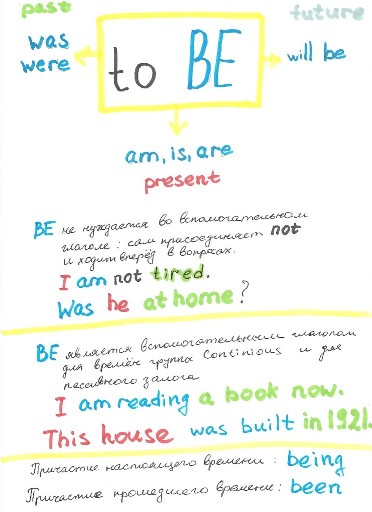 past
future
was
were
to BE
will be
am, is, are
present
BE не нуждается во вспомогательном
глаголе: сам присоединяет not
и ходит вперёд в вопросах.
I am not tired.
Was he at home?
BE является вспомогательным глаголом
для времён группы Continious и для
пассивного залога
I am reading a book now.
This house was built in 1921.
Причастие настоящего времени: being
Причастие прошедшего времени: been